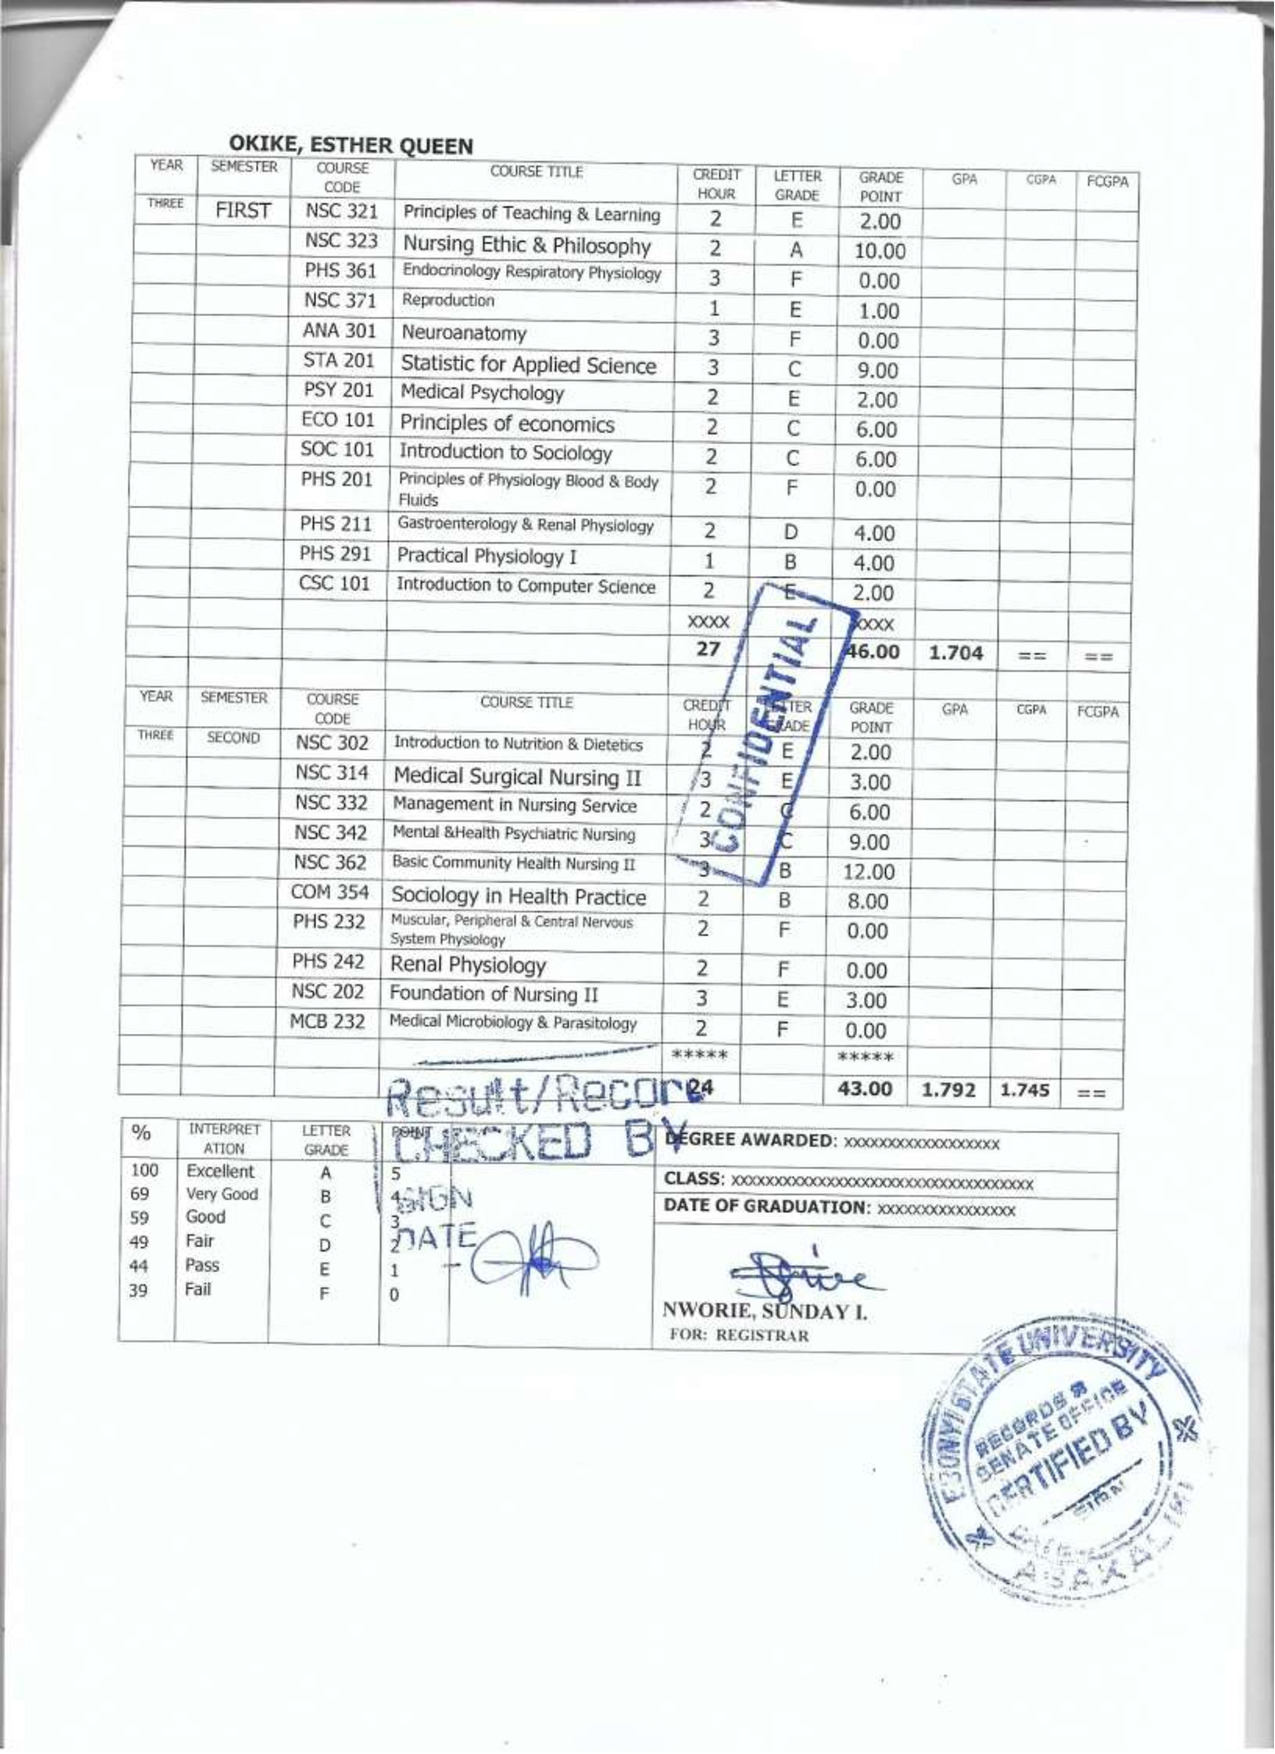 OKIKE, ESTHER QUEEN
YEAR SEMESTER COURSE CODE COURSE TITLE CREDIT HOUR LETTER GRADE GRADE POINT GPA CGPA FCGPA
THREE FIRST NSC 321 Principles of Teaching & Learning 2 E 2.00
NSC 323 Nursing Ethic & Philosophy 2 A 10.00
PHS 361 Endocrinology Respiratory Physiology 3 F 0.00
NSC 371 Reproduction 1 E 1.00
ANA 301 Neuroanatomy 3 F 0.00
STA 201 Statistic for Applied Science 3 C 9.00
PSY 201 Medical Psychology 2 E 2.00
ECO 101 Principles of economics 2 C 6.00
SOC 101 Introduction to Sociology 2 C 6.00
PHS 201 Principles of Physiology Blood & Body Fluids 2 F 0.00
PHS 211 Gastroenterology & Renal Physiology 2 D 4.00
PHS 291 Practical Physiology I 1 B 4.00
CSC 101 Introduction to Computer Science 2 E 2.00
XXXX XXXX
27 46.00 1.704 == ==
CONFIDENTIAL
YEAR SEMESTER COURSE CODE COURSE TITLE CREDIT HOUR LETTER GRADE GRADE POINT GPA CGPA FCGPA
THREE SECOND NSC 302 Introduction to Nutrition & Dietetics 2 E 2.00
NSC 314 Medical Surgical Nursing II 3 E 3.00
NSC 332 Management in Nursing Service 2 C 6.00
NSC 342 Mental &Health Psychiatric Nursing 3 C 9.00
NSC 362 Basic Community Health Nursing II 3 B 12.00
COM 354 Sociology in Health Practice 2 B 8.00
PHS 232 Muscular, Peripheral & Central Nervous System Physiology 2 F 0.00
PHS 242 Renal Physiology 2 F 0.00
NSC 202 Foundation of Nursing II 3 E 3.00
MCB 232 Medical Microbiology & Parasitology 2 F 0.00
***** *****
24 43.00 1.792 1.745 ==
Result/Record
CHECKED BY
SIGN
DATE
% INTERPRETATION LETTER GRADE POINT
100 Excellent A 5
69 Very Good B 4
59 Good C 3
49 Fair D 2
44 Pass E 1
39 Fail F 0
DEGREE AWARDED: xxxxxxxxxxxxxxxxxx
CLASS: xxxxxxxxxxxxxxxxxxxxxxxxxxxxxxxxxxx
DATE OF GRADUATION: xxxxxxxxxxxxxxxx
NWORIE, SUNDAY I.
FOR: REGISTRAR
EBONYI STATE UNIVERSITY
RECORDS &
SENATE OFFICE
CERTIFIED BY
SIGN
DATE
ABAKALIKI